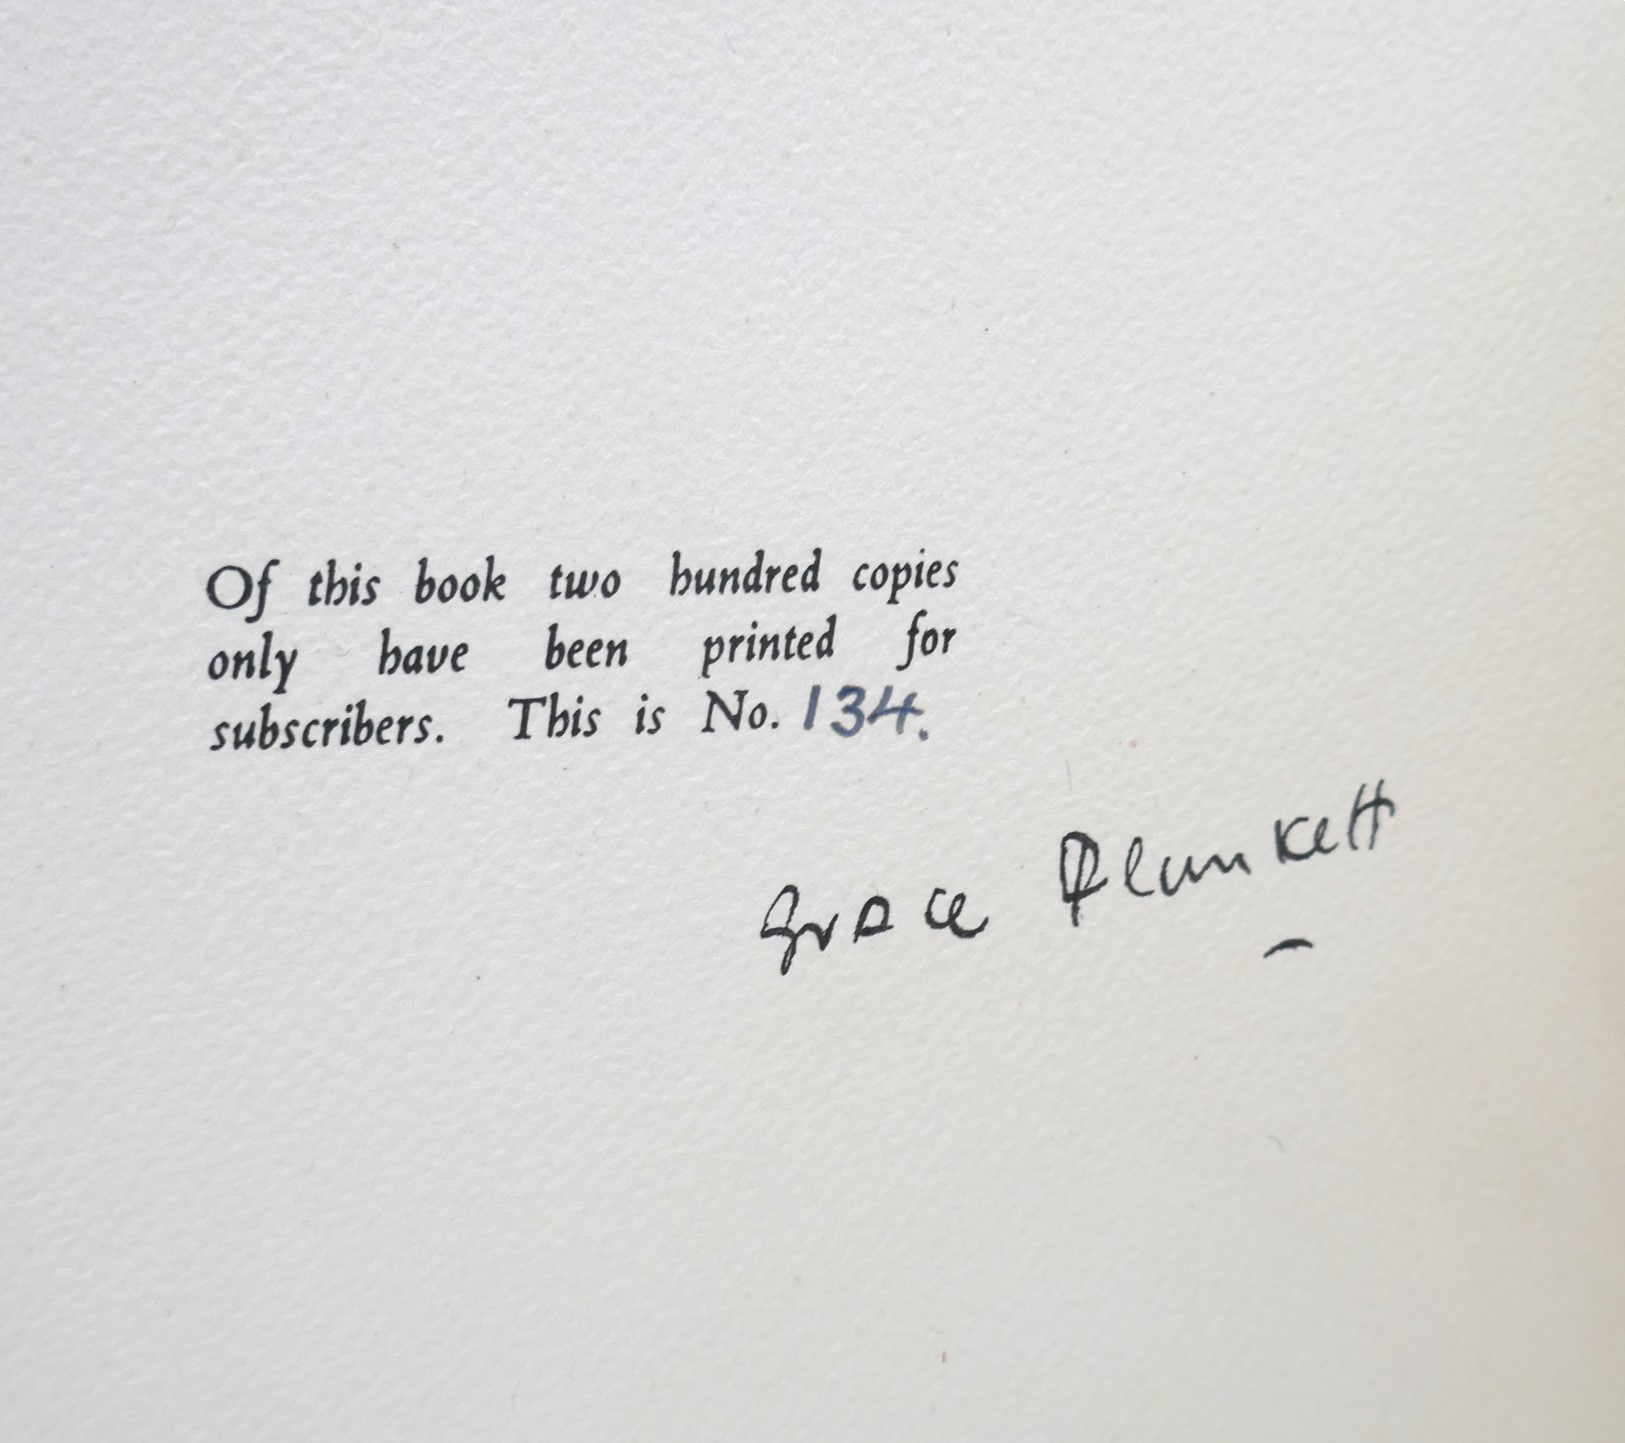 Of this book two hundred copies
only have been printed for
subscribers. This is No. 134.
Grace Plunkett